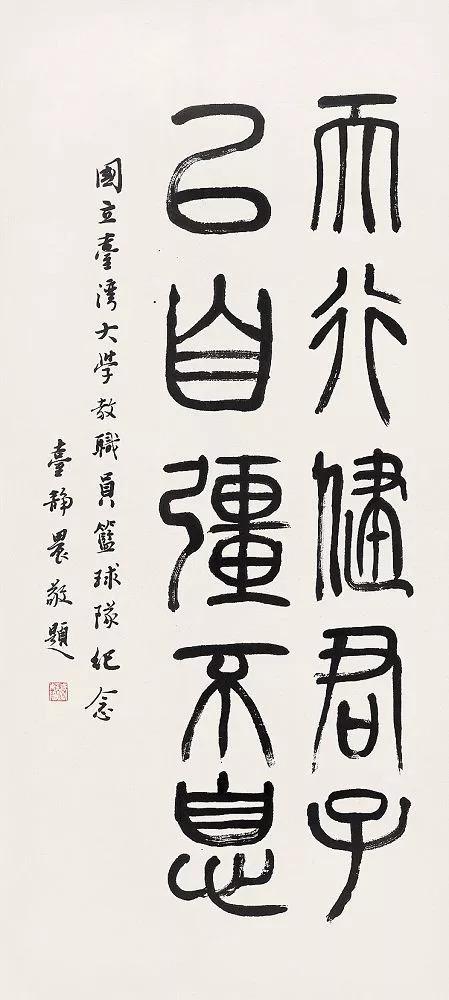 天行健君子
㠯自彊不息
國立臺灣大學教職員籃球隊紀念
臺靜農敬題